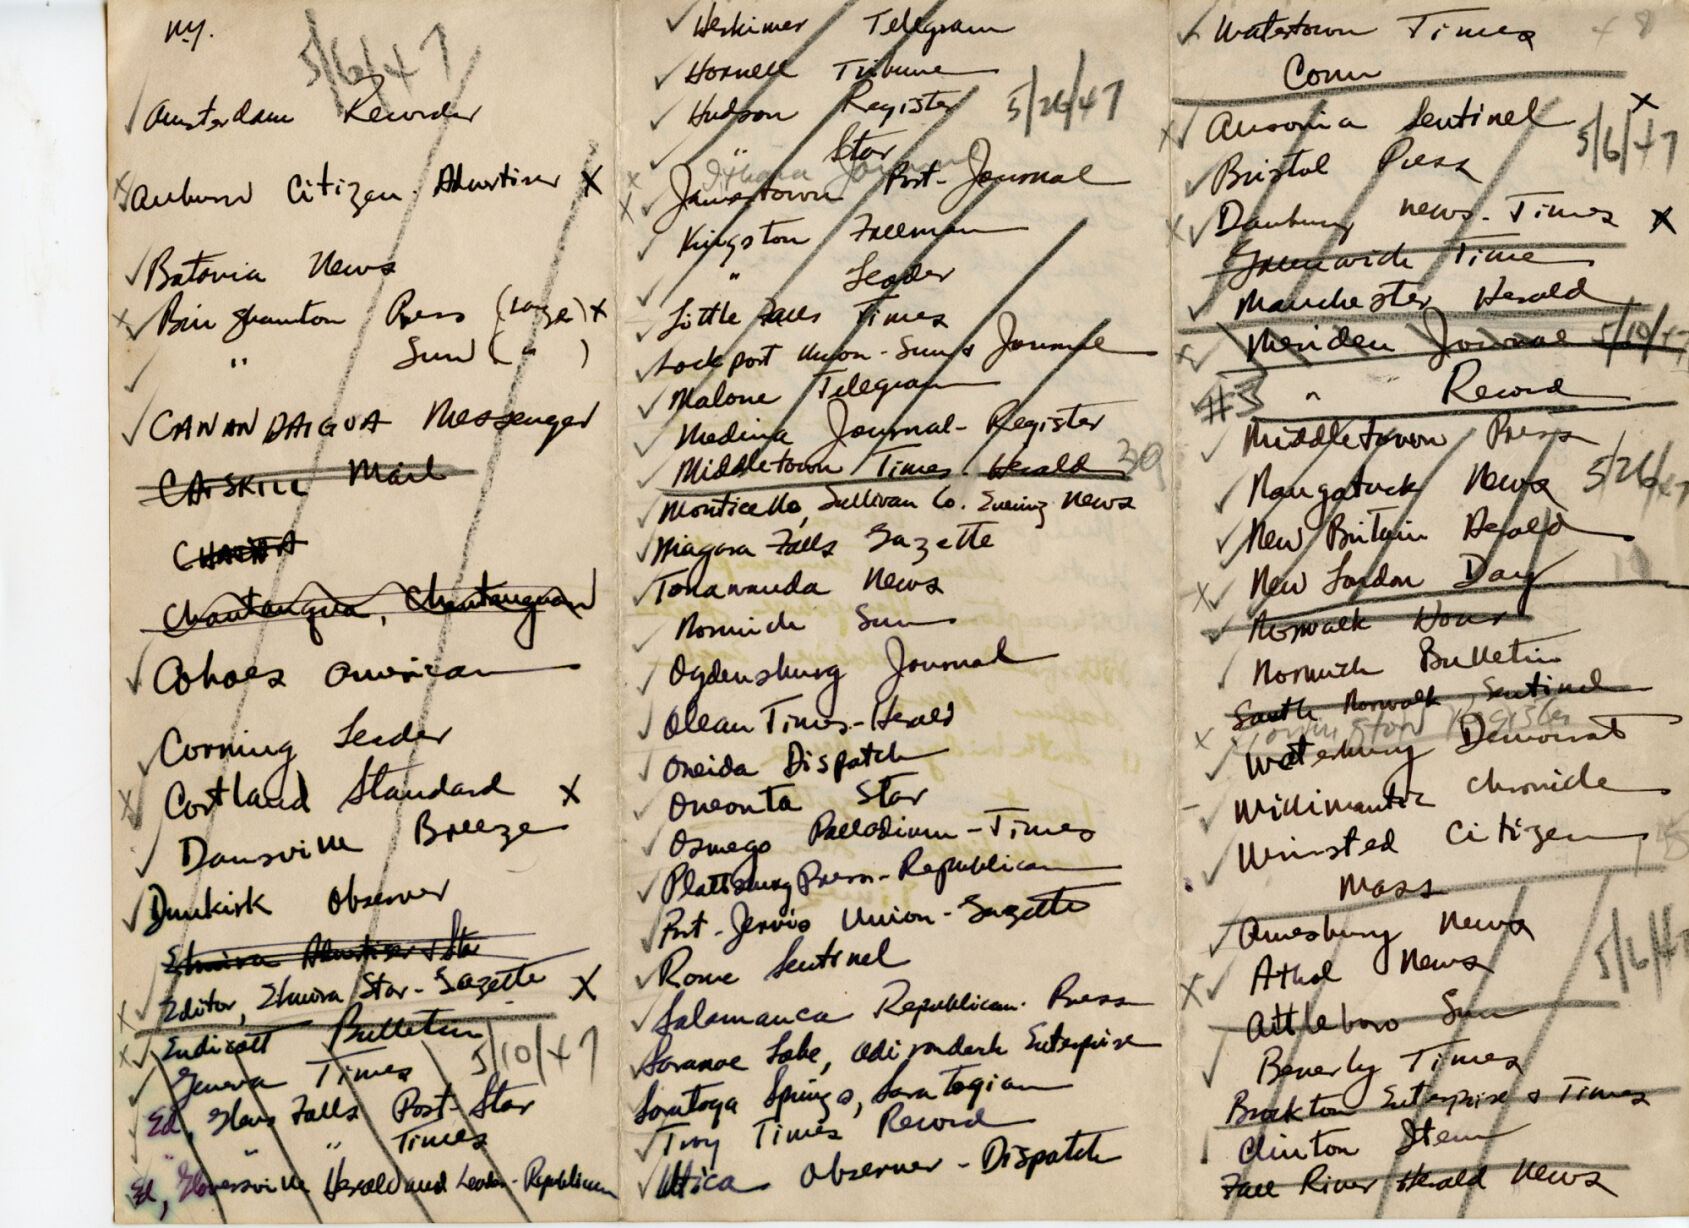 N.Y.
5/6/47
Amsterdam Recorder
Auburn Citizen-Advertiser X
Batavia News
Binghamton Press (Large) X
" Sun ( " )
CANANDAIGUA Messenger
CATSKILL Mail
Chautauqua, Chautauquan
Cohoes American
Corning Leader
Cortland Standard X
Dansville Breeze
Dunkirk Observer
Elmira Advertiser & Star
Editor, Elmira Star-Gazette X
Endicott Bulletin
5/10/47
Geneva Times
Ed, Glens Falls Post-Star
" " " Times
Ed, Gloversville Herald and Leader-Republican
Herkimer Telegram
Hornell Tribune
Hudson Register 5/26/47
" Star
Ithaca Journal
Jamestown Post-Journal
Kingston Freeman
" Leader
Little Falls Times
Lockport Union-Sun & Journal
Malone Telegram
Medina Journal-Register
Middletown Times Herald 39
Monticello, Sullivan Co. Evening News
Niagara Falls Gazette
Tonawanda News
Norwich Sun
Ogdensburg Journal
Olean Times-Herald
Oneida Dispatch
Oneonta Star
Oswego Palladium-Times
Plattsburg Press-Republican
Port-Jervis Union-Gazette
Rome Sentinel
Salamanca Republican-Press
Saranac Lake, Adirondack Enterprise
Saratoga Springs, Saratogian
Troy Times Record
Utica Observer-Dispatch
Watertown Times + 8
Conn
Ansonia Sentinel X
5/6/47
Bristol Press
Danbury News-Times X
Greenwich Time
Manchester Herald
Meriden Journal 5/10/47
#3 " Record
Middletown Press
Naugatuck News 5/26/47
New Britain Herald
New London Day 10
Norwalk Hour
Norwich Bulletin
South Norwalk Sentinel
Torrington Register
Waterbury Democrat
Willimantic Chronicle
Winsted Citizen
Mass
Amesbury News
Athol News
5/6/47
Attleboro Sun
Beverly Times
Brockton Enterprise & Times
Clinton Item
Fall River Herald News